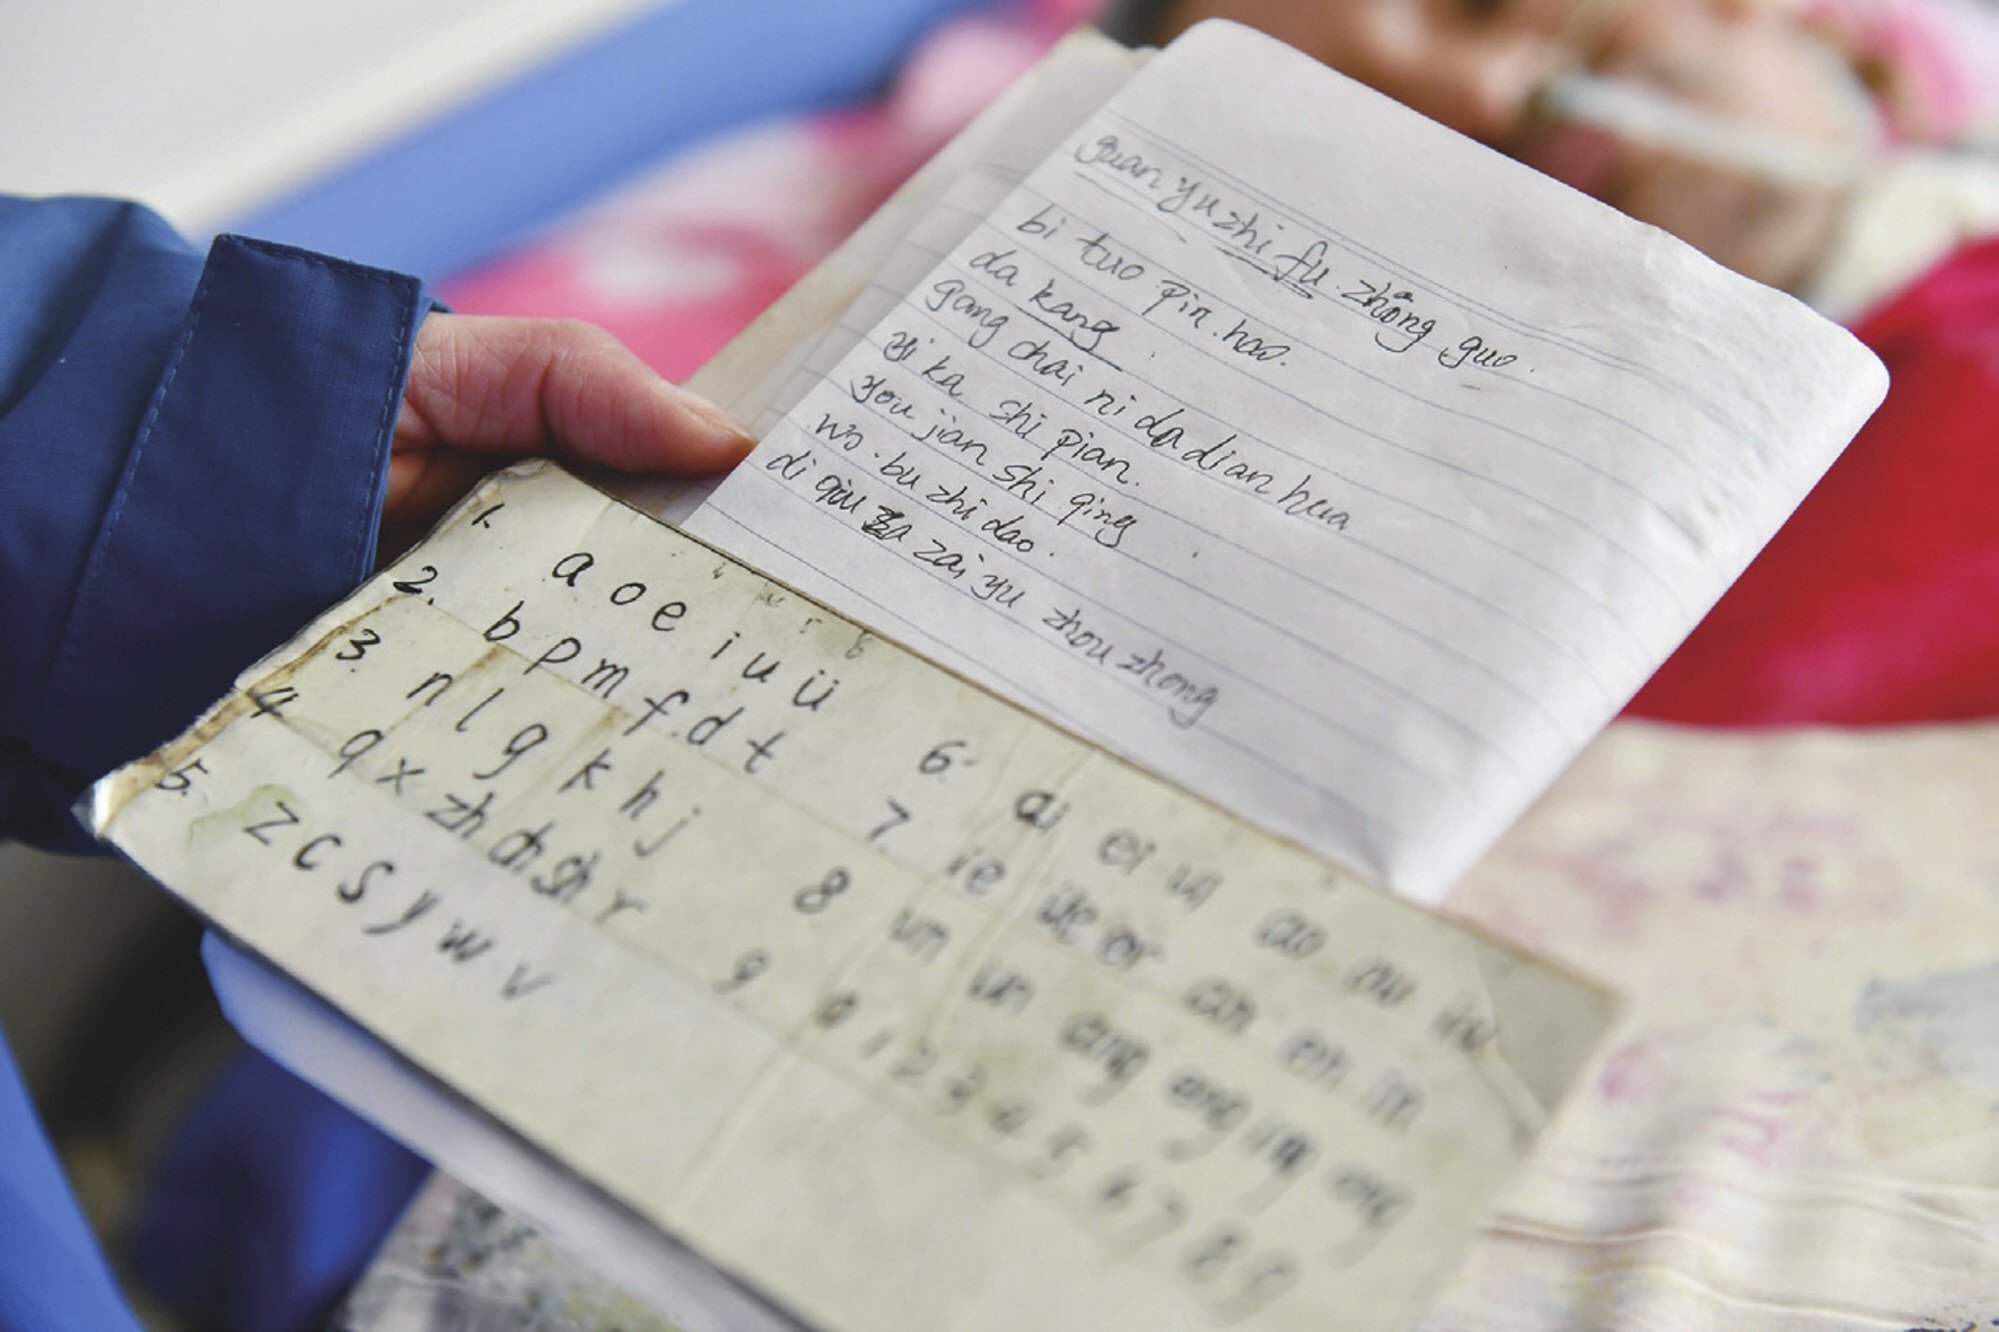 guan yu zhi fu zhong guo.
bi tuo pin hao.
da kang.
gang chai ni da dian hua
yi ka shi pian.
you jian shi qing
wo bu zhi dao.
di qiu zai yu zhou zhong
1. a o e i u ü
2. b p m f d t
3. n l g k h j
4 q x zh ch sh r
5. z c s y w v
6. ai ei ui ao ou iu
7. ie üe er an en in
8 un ün ang eng ing ong
9 0 1 2 3 4 5 6 7 8 9